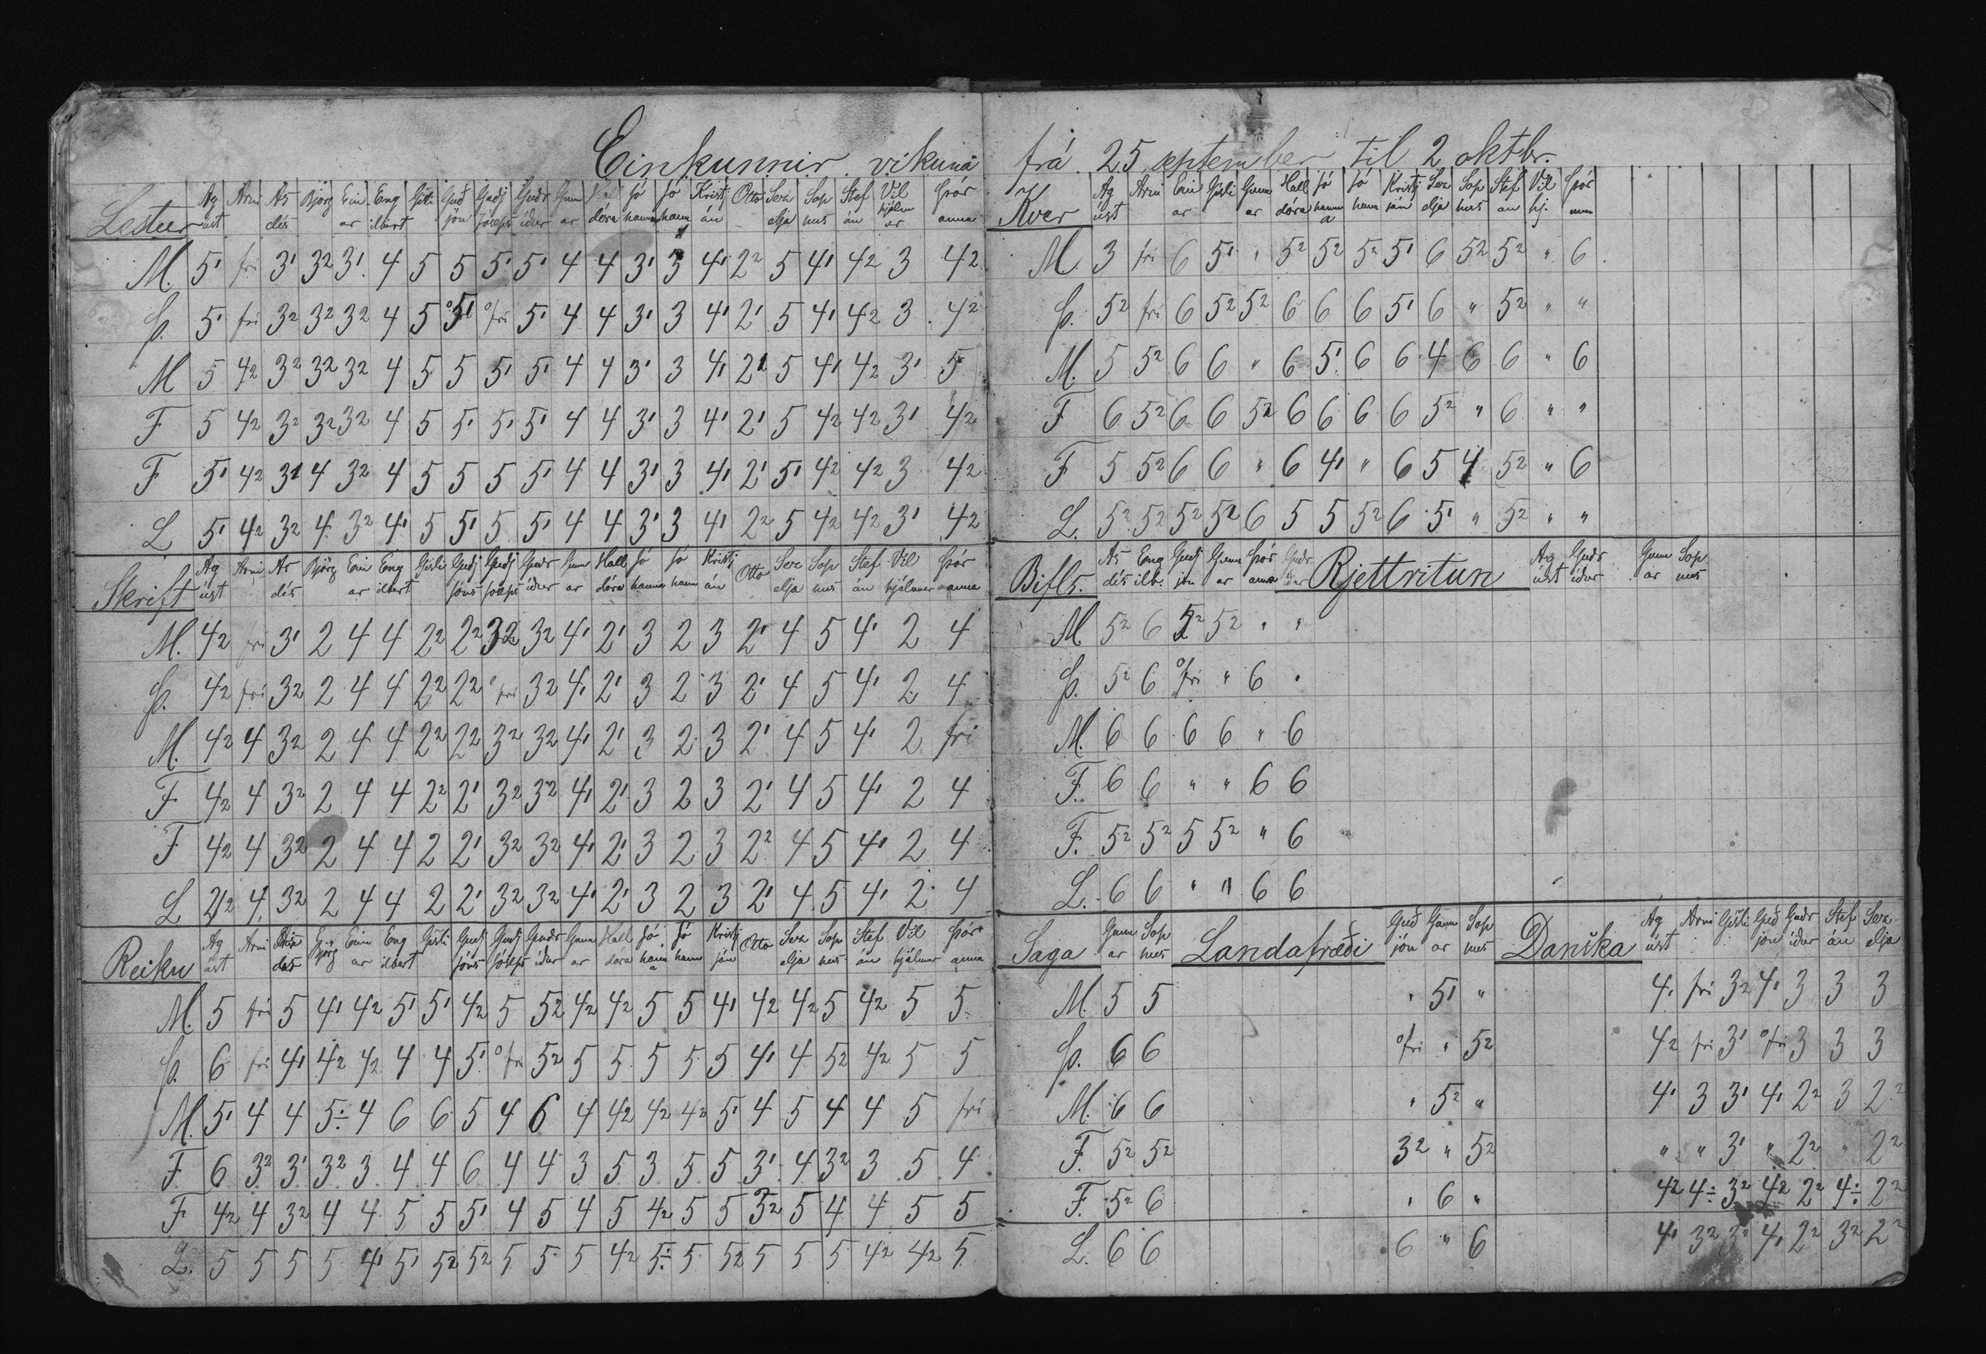 Einkunnir vikuna frá 25 september til 2 oktbr.
Lestur Ág úst Árni Ás dís Björg Ein ar Eng ilbert Gísli Guð jón Guðj Jóseps Guðr íður Gunn ar Hall dóra Jó hanna Jó hann Kristj án Otto Sera elja Sop nus Stef án Vil hjálm ur Þór anna
M. 5' fri 3' 32 3' 4 5 5 5' 5' 4 4 3' 3 4' 22 5 4' 42 3 42
Þ. 5' fri 32 32 32 4 5 5' fri 5' 4 4 3' 3 4' 2' 5 4' 42 3 42
M 5 42 32 32 32 4 5 5 5' 5' 4 4 3' 3 4' 21 5 4' 42 3' 5
F 5 42 32 32 32 4 5 5' 5' 5' 4 4 3' 3 4' 2' 5 42 42 3' 42
F 5' 42 31 4 32 4 5 5 5 5' 4 4 3' 3 4' 2' 5' 42 42 3 42
L 5' 42 32 4 32 4' 5 5' 5 5' 4 4 3' 3 4' 22 5 42 42 3' 42
Skrift Ág úst Árni Ás dís Björg Ein ar Eng ilbert Gísli Guðj jóns Guðj Jóseps Guðr íður Gunn ar Hall dóra Jó hanna Jó hann Kristj án Otto Sera elja Sop nus Stef án Vil hjálmur Þór anna
M. 42 fri 3' 2 4 4 22 22 32 32 4' 2' 3 2 3 2' 4 5 4' 2 4
Þ. 42 fri 32 2 4 4 22 22 fri 32 4' 2' 3 2 3 2' 4 5 4' 2 4
M. 42 4 32 2 4 4 22 22 32 32 4' 2' 3 2 3 2' 4 5 4' 2 fri
F 42 4 32 2 4 4 22 2' 32 32 4' 2' 3 2 3 2' 4 5 4' 2 4
F 42 4 32 2 4 4 2 2' 32 32 4' 2' 3 2 3 22 4 5 4' 2 4
L 42 4 32 2 4 4 2 2' 32 32 4' 2' 3 2 3 2' 4 5 4' 2 4
Reikn Ág úst Árni Ás dís Björg Ein ar Eng ilbert Gísli Guðj jóns Guðj Jóseps Guðr íður Gunn ar Hall dóra Jó hann a Jó hann Kristj ján Otto Sera elja Sop nus Stef án Vil hjálmur Þór anna
M. 5 fri 5 4' 42 5' 5' 42 5 52 42 42 5 5 4' 42 42 5 42 5 5
Þ. 6 fri 4' 42 42 4 4 5' fri 52 5 5 5 5 5 4' 4 52 42 5 5
M. 5' 4 4 5÷ 4 6 6 5 4 6 4 42 42 42 5' 4 5 4 4 5 fri
F 6 32 3' 32 3 4 4 6 4 4 3 5 3 5 5 3' 4 32 3 5 4
F 42 4 32 4 4 5 5 5' 4 5 4 5 42 5 5 32 5 4 4 5 5
L. 5 5 5 5 4' 5' 52 52 5 5 5 42 5÷ 5 52 5 5 5 42 42 5
Kver Ág úst Árni Ein ar Gísli Gunn ar Hall dóra Jó hann a Jó hann Kristj ján Sera elja Sop nus Stef án Vil hj. Þór anna
M. 3 fri 6 5' " 52 52 52 5' 6 52 52 " 6
Þ. 52 fri 6 52 52 6 6 6 5' 6 " 52 " "
M. 5 52 6 6 " 6 5' 6 6 4 6 6 " 6
F 6 52 6 6 52 6 6 6 6 52 " 6 " "
F 5 52 6 6 " 6 4' " 6 5 4 52 " 6
L. 52 52 52 52 6 5 5 52 6 5' " 52 " "
Bifls. Ás dís Eng ilb. Guðj jón Gunn ar Þór anna Guðr íður Rjettritun Ág úst Guðr íður Gunn ar Sop nus
M 52 6 52 52 " "
Þ. 52 6 fri " 6 "
M. 6 6 6 6 " 6
F. 6 6 " " 6 6
F. 52 52 5 52 " 6
L. 6 6 " " 6 6
Saga Gunn ar Sop nus Landafræði Guð jón Gunn ar Sop nus Danska Ág úst Árni Gísli Guð jón Guðr íður Stef án Sera elja
M. 5 5 " 5' " 4' fri 32 4' 3 3 3
Þ. 6 6 fri " 52 42 fri 3' fri 3 3 3
M. 6 6 " 52 " 4' 3 3' 4' 22 3 22
F. 52 52 32 " 52 " " 3' " 22 " 22
F. 52 6 " 6 " 42 4÷ 32 42 22 4÷ 22
L. 6 6 6 " 6 4' 32 32 4' 22 32 22